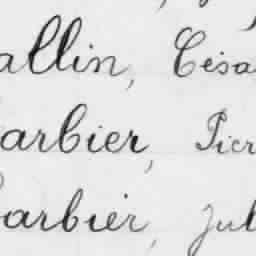 allin, Césa
arbier, Pier
arbier, Jul